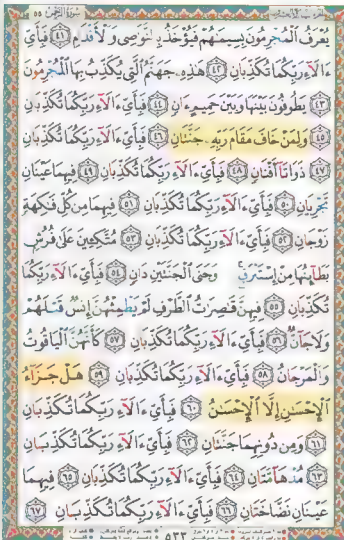 سورة الرحمن ٥٥
يُعْرَفُ الْمُجْرِمُونَ بِسِيمَٰهُمْ فَيُؤْخَذُ بِالنَّوَٰصِي وَالْأَقْدَامِ ٤١ فَبِأَيِّ
ءَالَآءِ رَبِّكُمَا تُكَذِّبَانِ ٤٢ هَٰذِهِ جَهَنَّمُ الَّتِي يُكَذِّبُ بِهَا الْمُجْرِمُونَ
٤٣ يَطُوفُونَ بَيْنَهَا وَبَيْنَ حَمِيمٍ ءَانٍ ٤٤ فَبِأَيِّ ءَالَآءِ رَبِّكُمَا تُكَذِّبَانِ
٤٥ وَلِمَنْ خَافَ مَقَامَ رَبِّهِ جَنَّتَانِ ٤٦ فَبِأَيِّ ءَالَآءِ رَبِّكُمَا تُكَذِّبَانِ
٤٧ ذَوَاتَآ أَفْنَانٍ ٤٨ فَبِأَيِّ ءَالَآءِ رَبِّكُمَا تُكَذِّبَانِ ٤٩ فِيهِمَا عَيْنَانِ
تَجْرِيَانِ ٥٠ فَبِأَيِّ ءَالَآءِ رَبِّكُمَا تُكَذِّبَانِ ٥١ فِيهِمَا مِن كُلِّ فَٰكِهَةٍ
زَوْجَانِ ٥٢ فَبِأَيِّ ءَالَآءِ رَبِّكُمَا تُكَذِّبَانِ ٥٣ مُتَّكِـِٔينَ عَلَىٰ فُرُشٍ
بَطَآئِنُهَا مِنْ إِسْتَبْرَقٍ وَجَنَى الْجَنَّتَيْنِ دَانٍ ٥٤ فَبِأَيِّ ءَالَآءِ رَبِّكُمَا
تُكَذِّبَانِ ٥٥ فِيهِنَّ قَٰصِرَٰتُ الطَّرْفِ لَمْ يَطْمِثْهُنَّ إِنسٌ قَبْلَهُمْ
وَلَا جَآنٌّ ٥٦ فَبِأَيِّ ءَالَآءِ رَبِّكُمَا تُكَذِّبَانِ ٥٧ كَأَنَّهُنَّ الْيَاقُوتُ
وَالْمَرْجَانُ ٥٨ فَبِأَيِّ ءَالَآءِ رَبِّكُمَا تُكَذِّبَانِ ٥٩ هَلْ جَزَآءُ
الْإِحْسَٰنِ إِلَّا الْإِحْسَٰنُ ٦٠ فَبِأَيِّ ءَالَآءِ رَبِّكُمَا تُكَذِّبَانِ
٦١ وَمِن دُونِهِمَا جَنَّتَانِ ٦٢ فَبِأَيِّ ءَالَآءِ رَبِّكُمَا تُكَذِّبَانِ
٦٣ مُدْهَآمَّتَانِ ٦٤ فَبِأَيِّ ءَالَآءِ رَبِّكُمَا تُكَذِّبَانِ ٦٥ فِيهِمَا
عَيْنَانِ نَضَّاخَتَانِ ٦٦ فَبِأَيِّ ءَالَآءِ رَبِّكُمَا تُكَذِّبَانِ ٦٧
٥٣٣